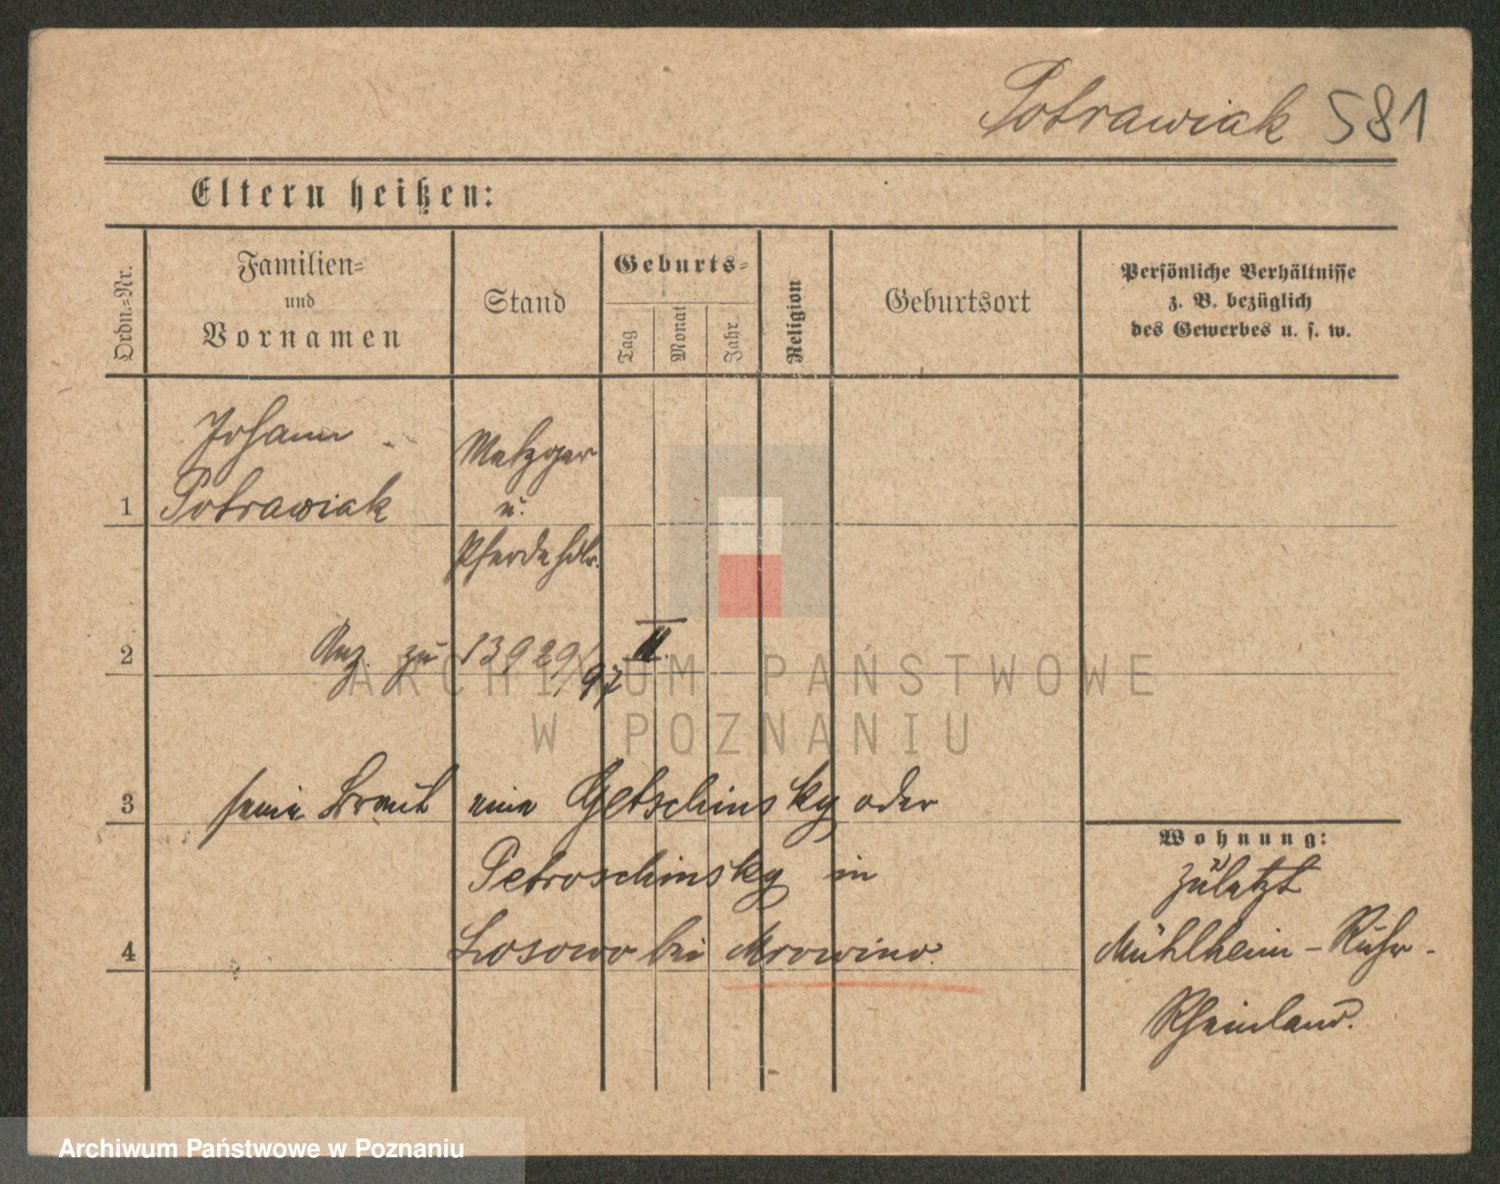 Potrawiak 581
Eltern heißen:
Ordn.=Nr.
Familien=
und
Vornamen
Stand
Geburts=
Tag
Monat
Jahr
Religion
Geburtsort
Persönliche Verhältnisse
z. B. bezüglich
des Gewerbes u. s. w.
Johann
1 Potrawiak
Metzger
u.
Pferdehdlr.
2 Anz. zu 13929/97 II.
3 seine Braut eine Getschinsky oder
Petroschinsky in
4 Losowo bei Mrowino.
Wohnung:
zuletzt
Mühlheim - Ruhr -
Rheinland.
ARCHIWUM PAŃSTWOWE
W POZNANIU
Archiwum Państwowe w Poznaniu